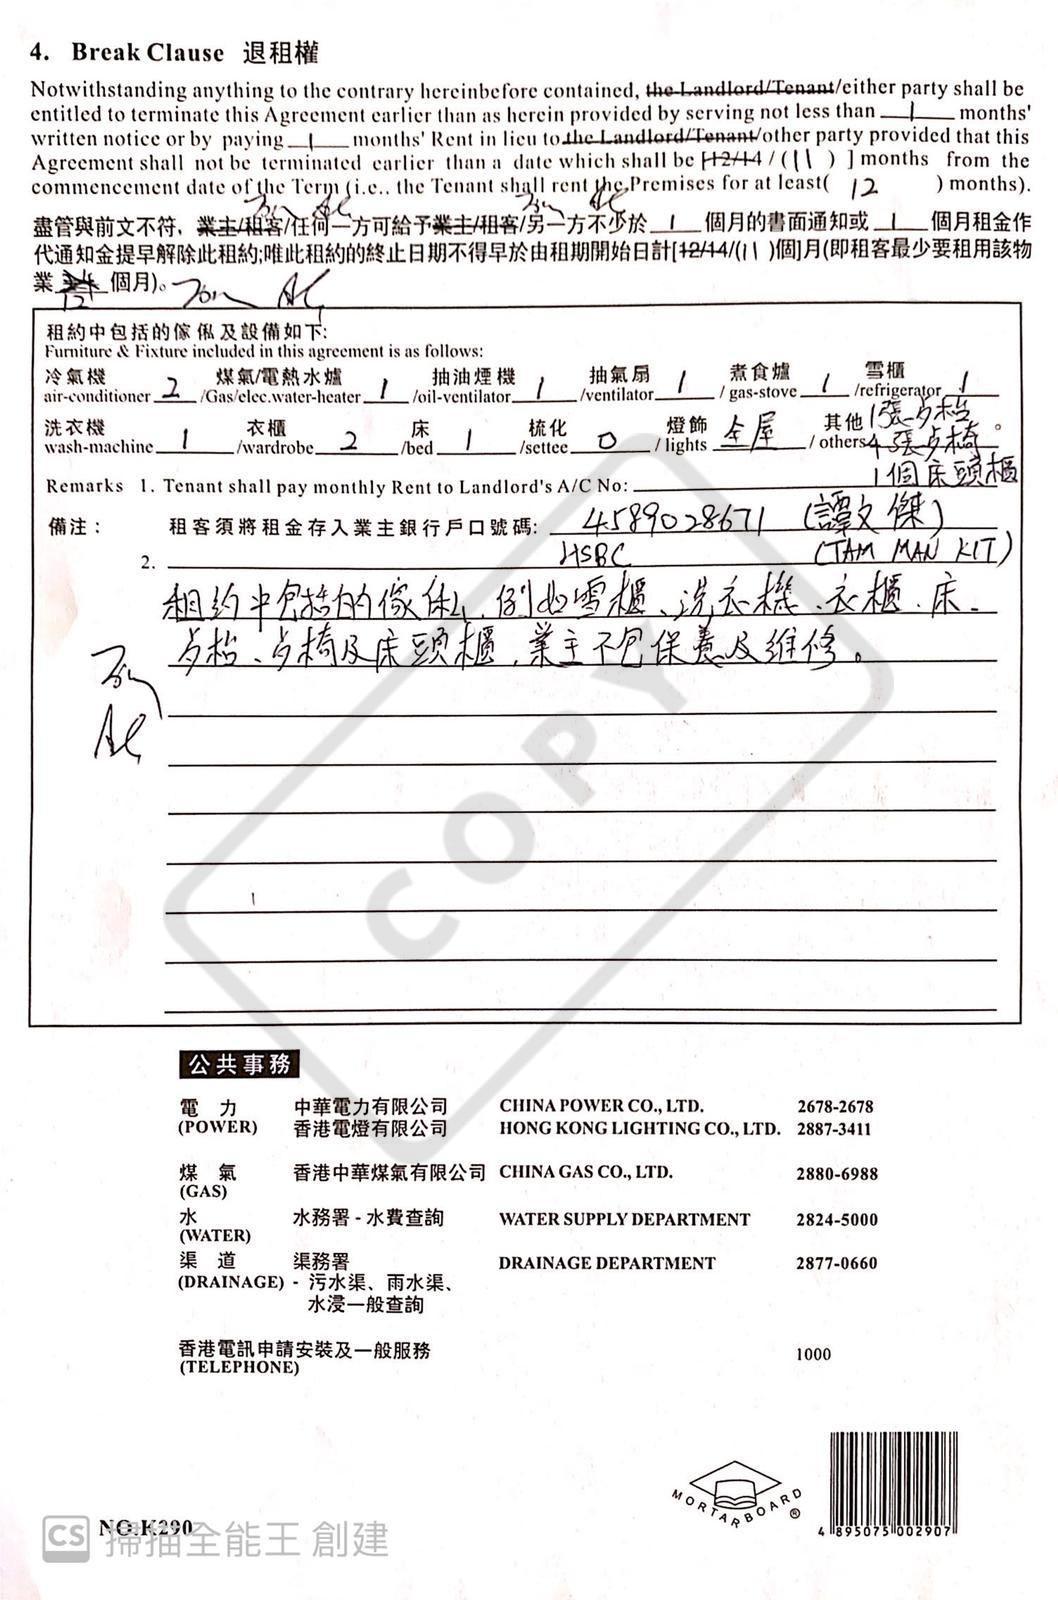 4. Break Clause 退租權
Notwithstanding anything to the contrary hereinbefore contained, the Landlord/Tenant/either party shall be
entitled to terminate this Agreement earlier than as herein provided by serving not less than 1 months'
written notice or by paying 1 months' Rent in lieu to the Landlord/Tenant/other party provided that this
Agreement shall not be terminated earlier than a date which shall be [12/14 / (11) ] months from the
commencement date of the Term (i.e.. the Tenant shall rent the Premises for at least( 12 ) months).
盡管與前文不符, 業主/租客/任何一方可給予業主/租客/另一方不少於 1 個月的書面通知或 1 個月租金作
代通知金提早解除此租約;唯此租約的終止日期不得早於由租期開始日計[12/14/(11 )個]月(即租客最少要租用該物
業 12 個月)。
租約中包括的傢俬及設備如下:
Furniture & Fixture included in this agreement is as follows:
冷氣機 煤氣/電熱水爐 抽油煙機 抽氣扇 煮食爐 雪櫃
air-conditioner 2 /Gas/elec.water-heater 1 /oil-ventilator 1 /ventilator 1 / gas-stove 1 /refrigerator 1
洗衣機 衣櫃 床 梳化 燈飾 其他 1張占枱 。
wash-machine 1 /wardrobe 2 /bed 1 /settee 0 / lights 全屋 / others 4張占椅
1個床頭櫃
Remarks 1. Tenant shall pay monthly Rent to Landlord's A/C No:
備注: 租客須將租金存入業主銀行戶口號碼: 4589028671 (譚文傑)
2. HSBC (TAM MAN KIT)
租約中包括的傢俬, 例如雪櫃、洗衣機、衣櫃、床、
占枱、占椅及床頭櫃, 業主不包保養及維修。
COPY
公共事務
電力 中華電力有限公司 CHINA POWER CO., LTD. 2678-2678
(POWER) 香港電燈有限公司 HONG KONG LIGHTING CO., LTD. 2887-3411
煤氣 香港中華煤氣有限公司 CHINA GAS CO., LTD. 2880-6988
(GAS)
水 水務署 - 水費查詢 WATER SUPPLY DEPARTMENT 2824-5000
(WATER)
渠道 渠務署 DRAINAGE DEPARTMENT 2877-0660
(DRAINAGE) - 污水渠、雨水渠、
水浸一般查詢
香港電訊申請安裝及一般服務 1000
(TELEPHONE)
MORTARBOARD ®
4 895075 002907
NO.K290
CS 掃描全能王 創建